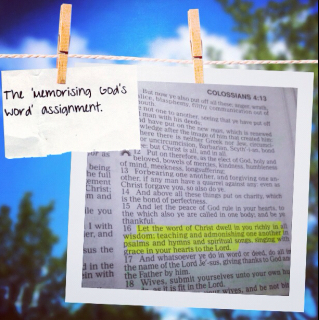 The 'Memorising God's
Word' assignment.
COLOSSIANS 4:13
But now ye also put off all these; anger, wrath,
malice, blasphemy, filthy communication out of
mouth.
not one to another, seeing that ye have put off
man with his deeds;
have put on the new man, which is renewed
knowledge after the image of him that created him:
there is neither Greek nor Jew, circumci-
uncircumcision, Barbarian, Scythian, bond
but Christ is all, and in all.
12 Put on therefore, as the elect of God, holy and
beloved, bowels of mercies, kindness, humbleness
of mind, meekness, longsuffering;
13 Forbearing one another, and forgiving one an-
other, if any man have a quarrel against any: even as
Christ forgave you, so also do ye.
14 And above all these things put on charity, which
is the bond of perfectness.
15 And let the peace of God rule in your hearts, to
the which also ye are called in one body; and be ye
thankful.
16 Let the word of Christ dwell in you richly in all
wisdom; teaching and admonishing one another in
psalms and hymns and spiritual songs, singing with
grace in your hearts to the Lord.
17 And whatsoever ye do in word or deed, do all in
the name of the Lord Je-sus, giving thanks to God and
the Father by him.
18 Wives, submit yourselves unto your own
as it is fit in the Lord.